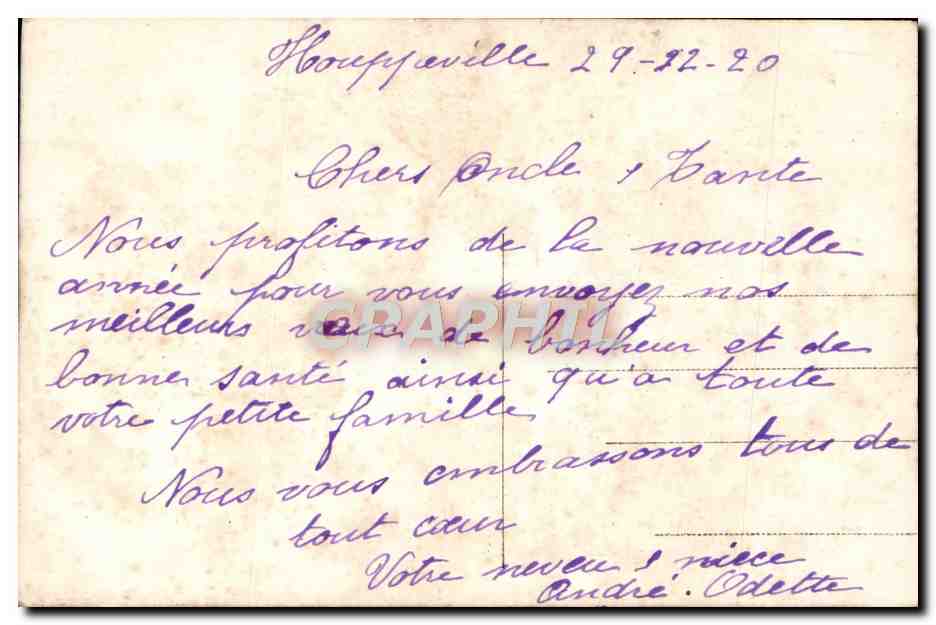 Houppeville 29-12-20
Chers Oncle & Tante
Nous profitons de la nouvelle
année pour vous envoyez nos
meilleurs vœux de bonheur et de
bonne santé ainsi qu'a toute
votre petite famille
Nous vous embrassons tous de
tout cœur
Votre neveu & niece
André. Odette
CPAPHIL